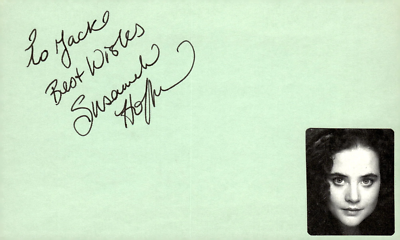 To Jack
Best Wishes
Susannah
Hoffmann